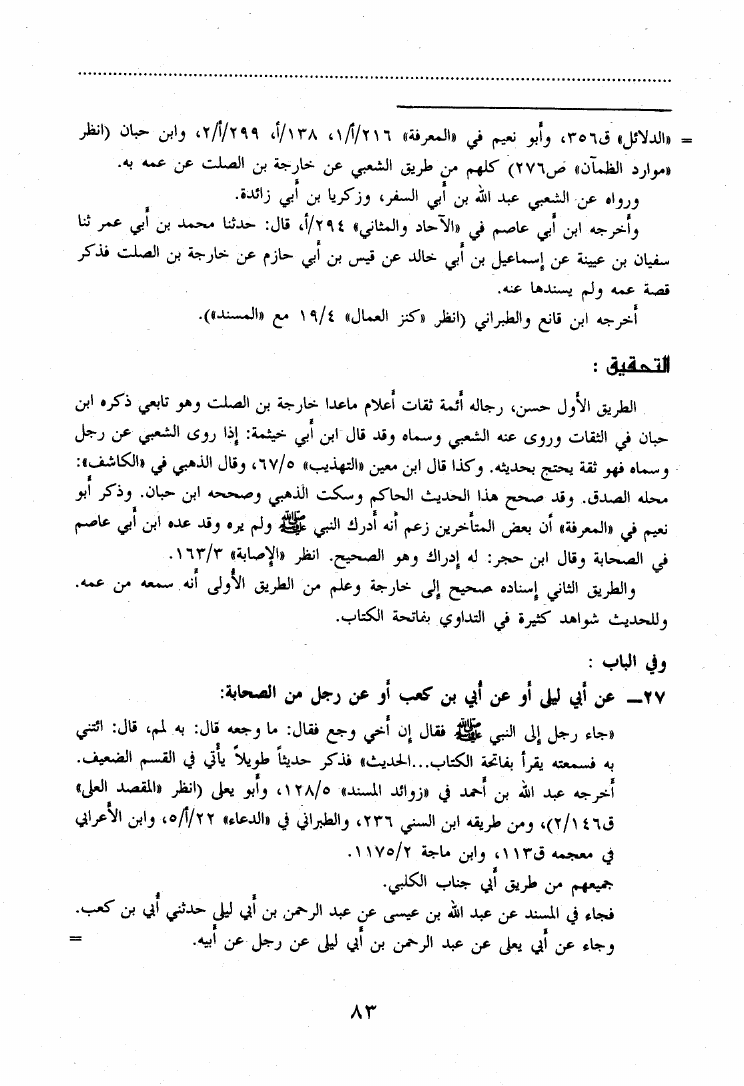 = «الدلائل» ق٣٥٦، وأبو نعيم في «المعرفة» ٢١٦/أ/١، ١٣٨/أ، ٢٩٩/أ/٢، وابن حبان (انظر
«موارد الظمآن» ص٢٧٦) كلهم من طريق الشعبي عن خارجة بن الصلت عن عمه به.
ورواه عن الشعبي عبد الله بن أبي السفر، وزكريا بن أبي زائدة.
وأخرجه ابن أبي عاصم في «الآحاد والمثاني» ٢٩٤/أ، قال: حدثنا محمد بن أبي عمر ثنا
سفيان بن عيينة عن إسماعيل بن أبي خالد عن قيس بن أبي حازم عن خارجة بن الصلت فذكر
قصة عمه ولم يسندها عنه.
أخرجه ابن قانع والطبراني (انظر «كنز العمال» ١٩/٤ مع «المسند»).
التحقيق :
الطريق الأول حسن، رجاله أئمة ثقات أعلام ماعدا خارجة بن الصلت وهو تابعي ذكره ابن
حبان في الثقات وروى عنه الشعبي وسماه وقد قال ابن أبي خيثمة: إذا روى الشعبي عن رجل
وسماه فهو ثقة يحتج بحديثه. وكذا قال ابن معين «التهذيب» ٦٧/٥، وقال الذهبي في «الكاشف»:
محله الصدق. وقد صحح هذا الحديث الحاكم وسكت الذهبي وصححه ابن حبان. وذكر أبو
نعيم في «المعرفة» أن بعض المتأخرين زعم أنه أدرك النبي ﷺ ولم يره وقد عده ابن أبي عاصم
في الصحابة وقال ابن حجر: له إدراك وهو الصحيح. انظر «الإصابة» ١٦٣/٣.
والطريق الثاني إسناده صحيح إلى خارجة وعلم من الطريق الأولى أنه سمعه من عمه.
وللحديث شواهد كثيرة في التداوي بفاتحة الكتاب.
وفي الباب :
٢٧ــ عن أبي ليلى أو عن أبي بن كعب أو عن رجل من الصحابة:
«جاء رجل إلى النبي ﷺ فقال إن أخي وجع فقال: ما وجعه قال: به لمم، قال: ائتني
به فسمعته يقرأ بفاتحة الكتاب...الحديث» فذكر حديثاً طويلاً يأتي في القسم الضعيف.
أخرجه عبد الله بن أحمد في «زوائد المسند» ١٢٨/٥، وأبو يعلى (انظر «المقصد العلى»
ق١٤٦/٢)، ومن طريقه ابن السني ٢٣٦، والطبراني في «الدعاء» ٢٢/أ/٥، وابن الأعرابي
في معجمه ق١١٣، وابن ماجة ١١٧٥/٢.
جميعهم من طريق أبي جناب الكلبي.
فجاء في المسند عن عبد الله بن عيسى عن عبد الرحمن بن أبي ليلى حدثني أبي بن كعب.
وجاء عن أبي يعلى عن عبد الرحمن بن أبي ليلى عن رجل عن أبيه. =
٨٣